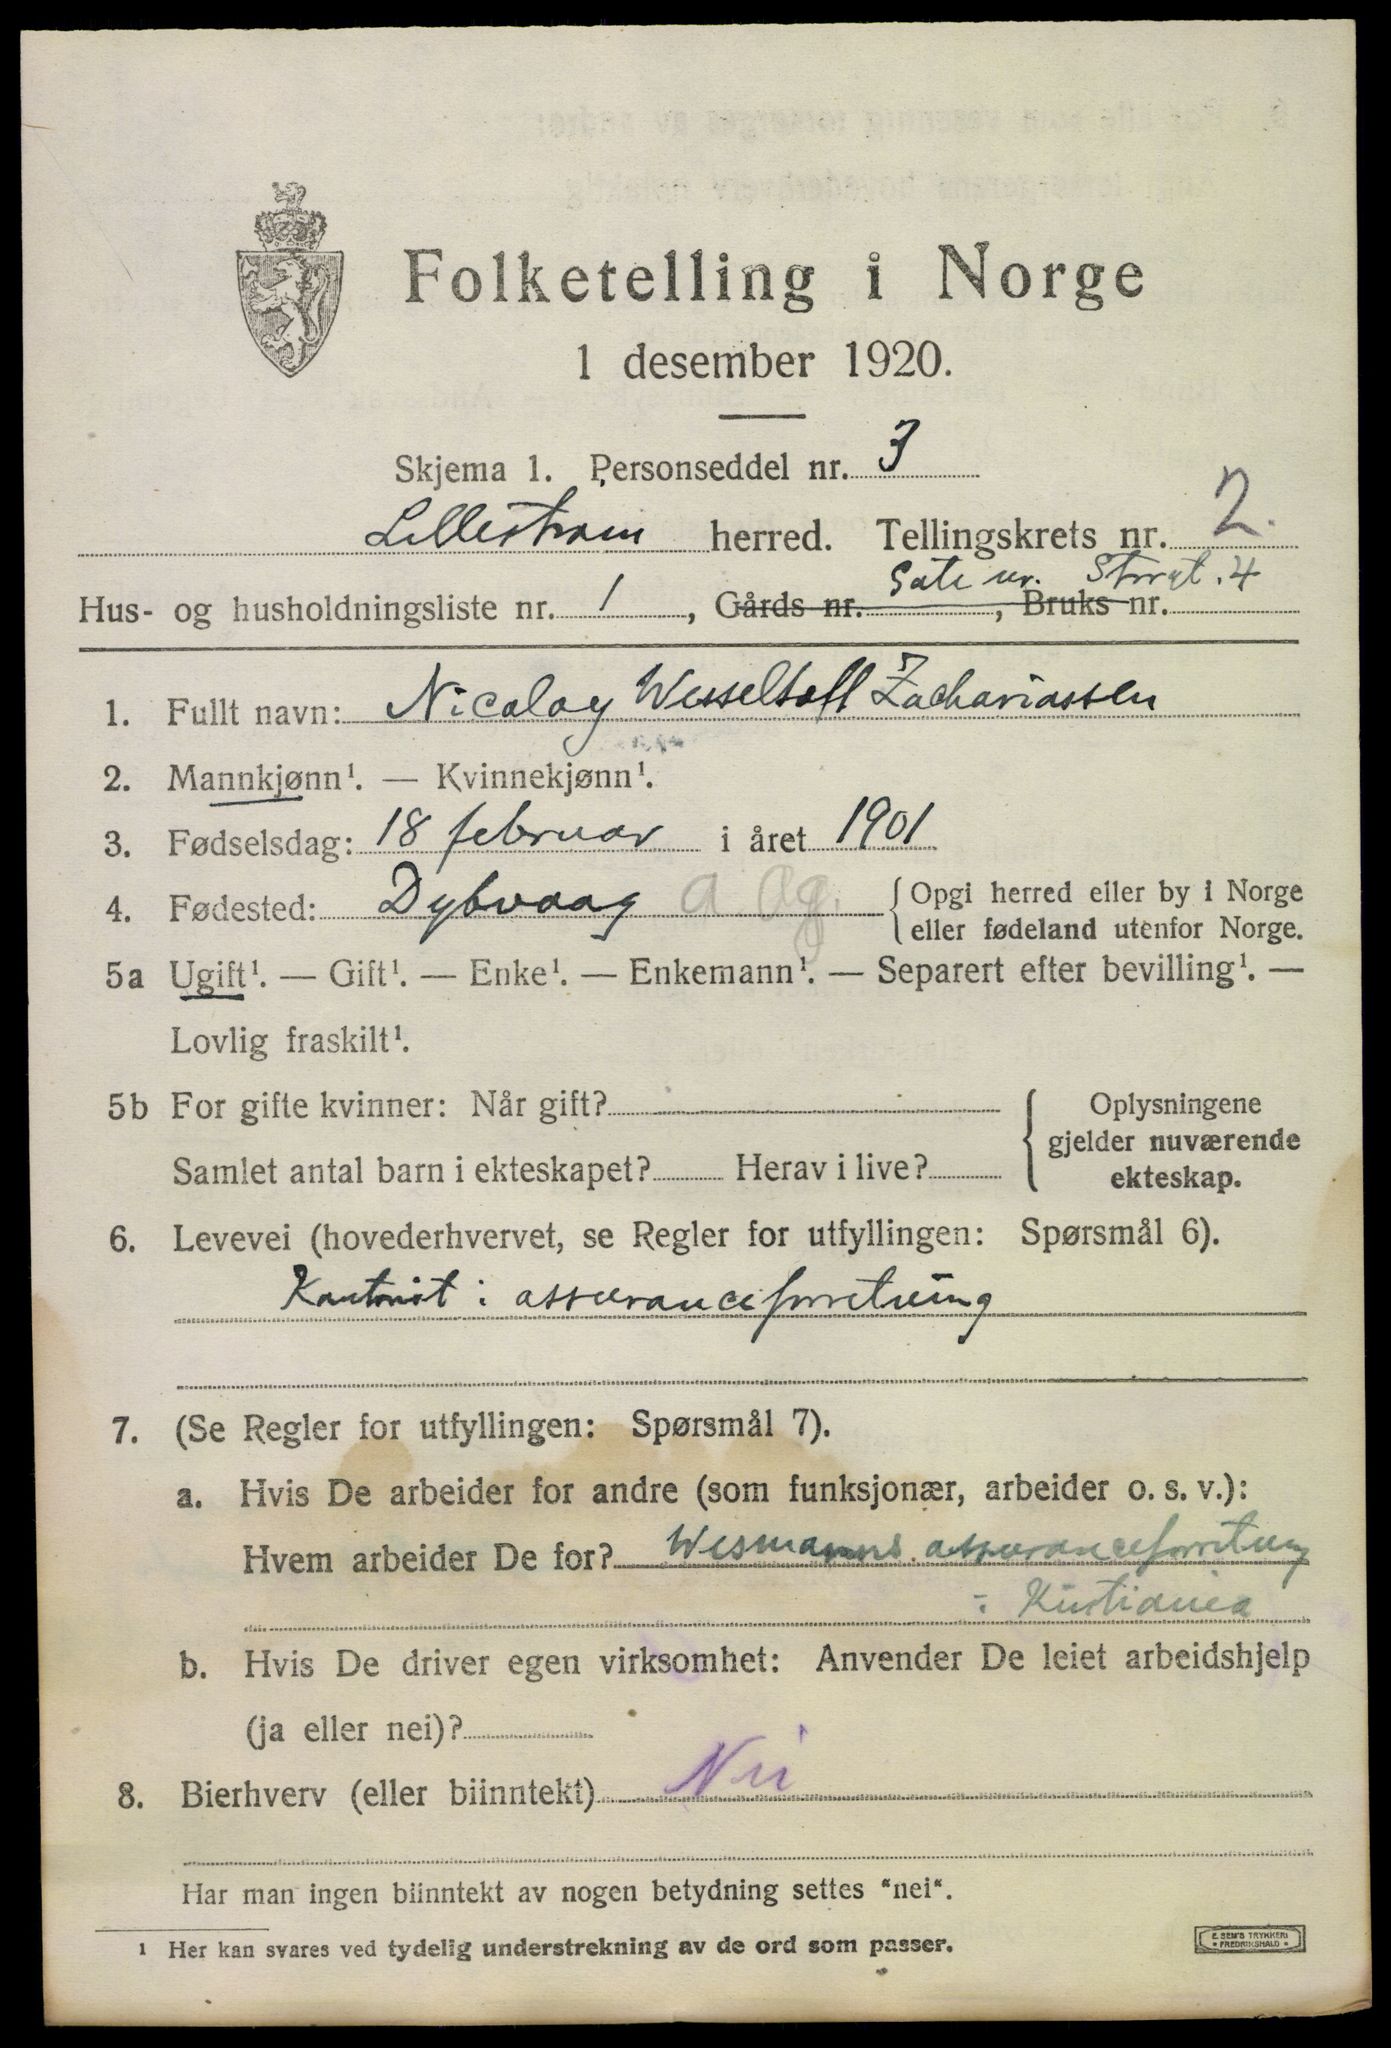 Folketelling i Norge
1 desember 1920.
Skjema 1. Personseddel nr. 3
Lillestrøm herred. Tellingskrets nr. 2.
Gate nr. Storgt. 4
Hus- og husholdningsliste nr. 1, Gårds nr. , Bruks nr.
1. Fullt navn: Nicolay Wesseltoft Zachariassen
2. Mannkjønn¹. — Kvinnekjønn¹.
3. Fødselsdag: 18 februar i året 1901
4. Fødested: Dybvaag a ag. { Opgi herred eller by i Norge
eller fødeland utenfor Norge.
5a Ugift¹. — Gift¹. — Enke¹. — Enkemann¹. — Separert efter bevilling¹. —
Lovlig fraskilt¹.
5b For gifte kvinner: Når gift? { Oplysningene
gjelder nuværende
Samlet antal barn i ekteskapet? Herav i live? ekteskap.
6. Levevei (hovederhvervet, se Regler for utfyllingen: Spørsmål 6).
Kontorist i assuranceforretning
7. (Se Regler for utfyllingen: Spørsmål 7).
a. Hvis De arbeider for andre (som funksjonær, arbeider o. s. v.):
Hvem arbeider De for? Wesmanns assuranceforretning
i Kristiania
b. Hvis De driver egen virksomhet: Anvender De leiet arbeidshjelp
(ja eller nei)?
8. Bierhverv (eller biinntekt) Nei
Har man ingen biinntekt av nogen betydning settes "nei".
¹ Her kan svares ved tydelig understrekning av de ord som passer.
E. SEM'S TRYKKERI
• FREDRIKSHALD •